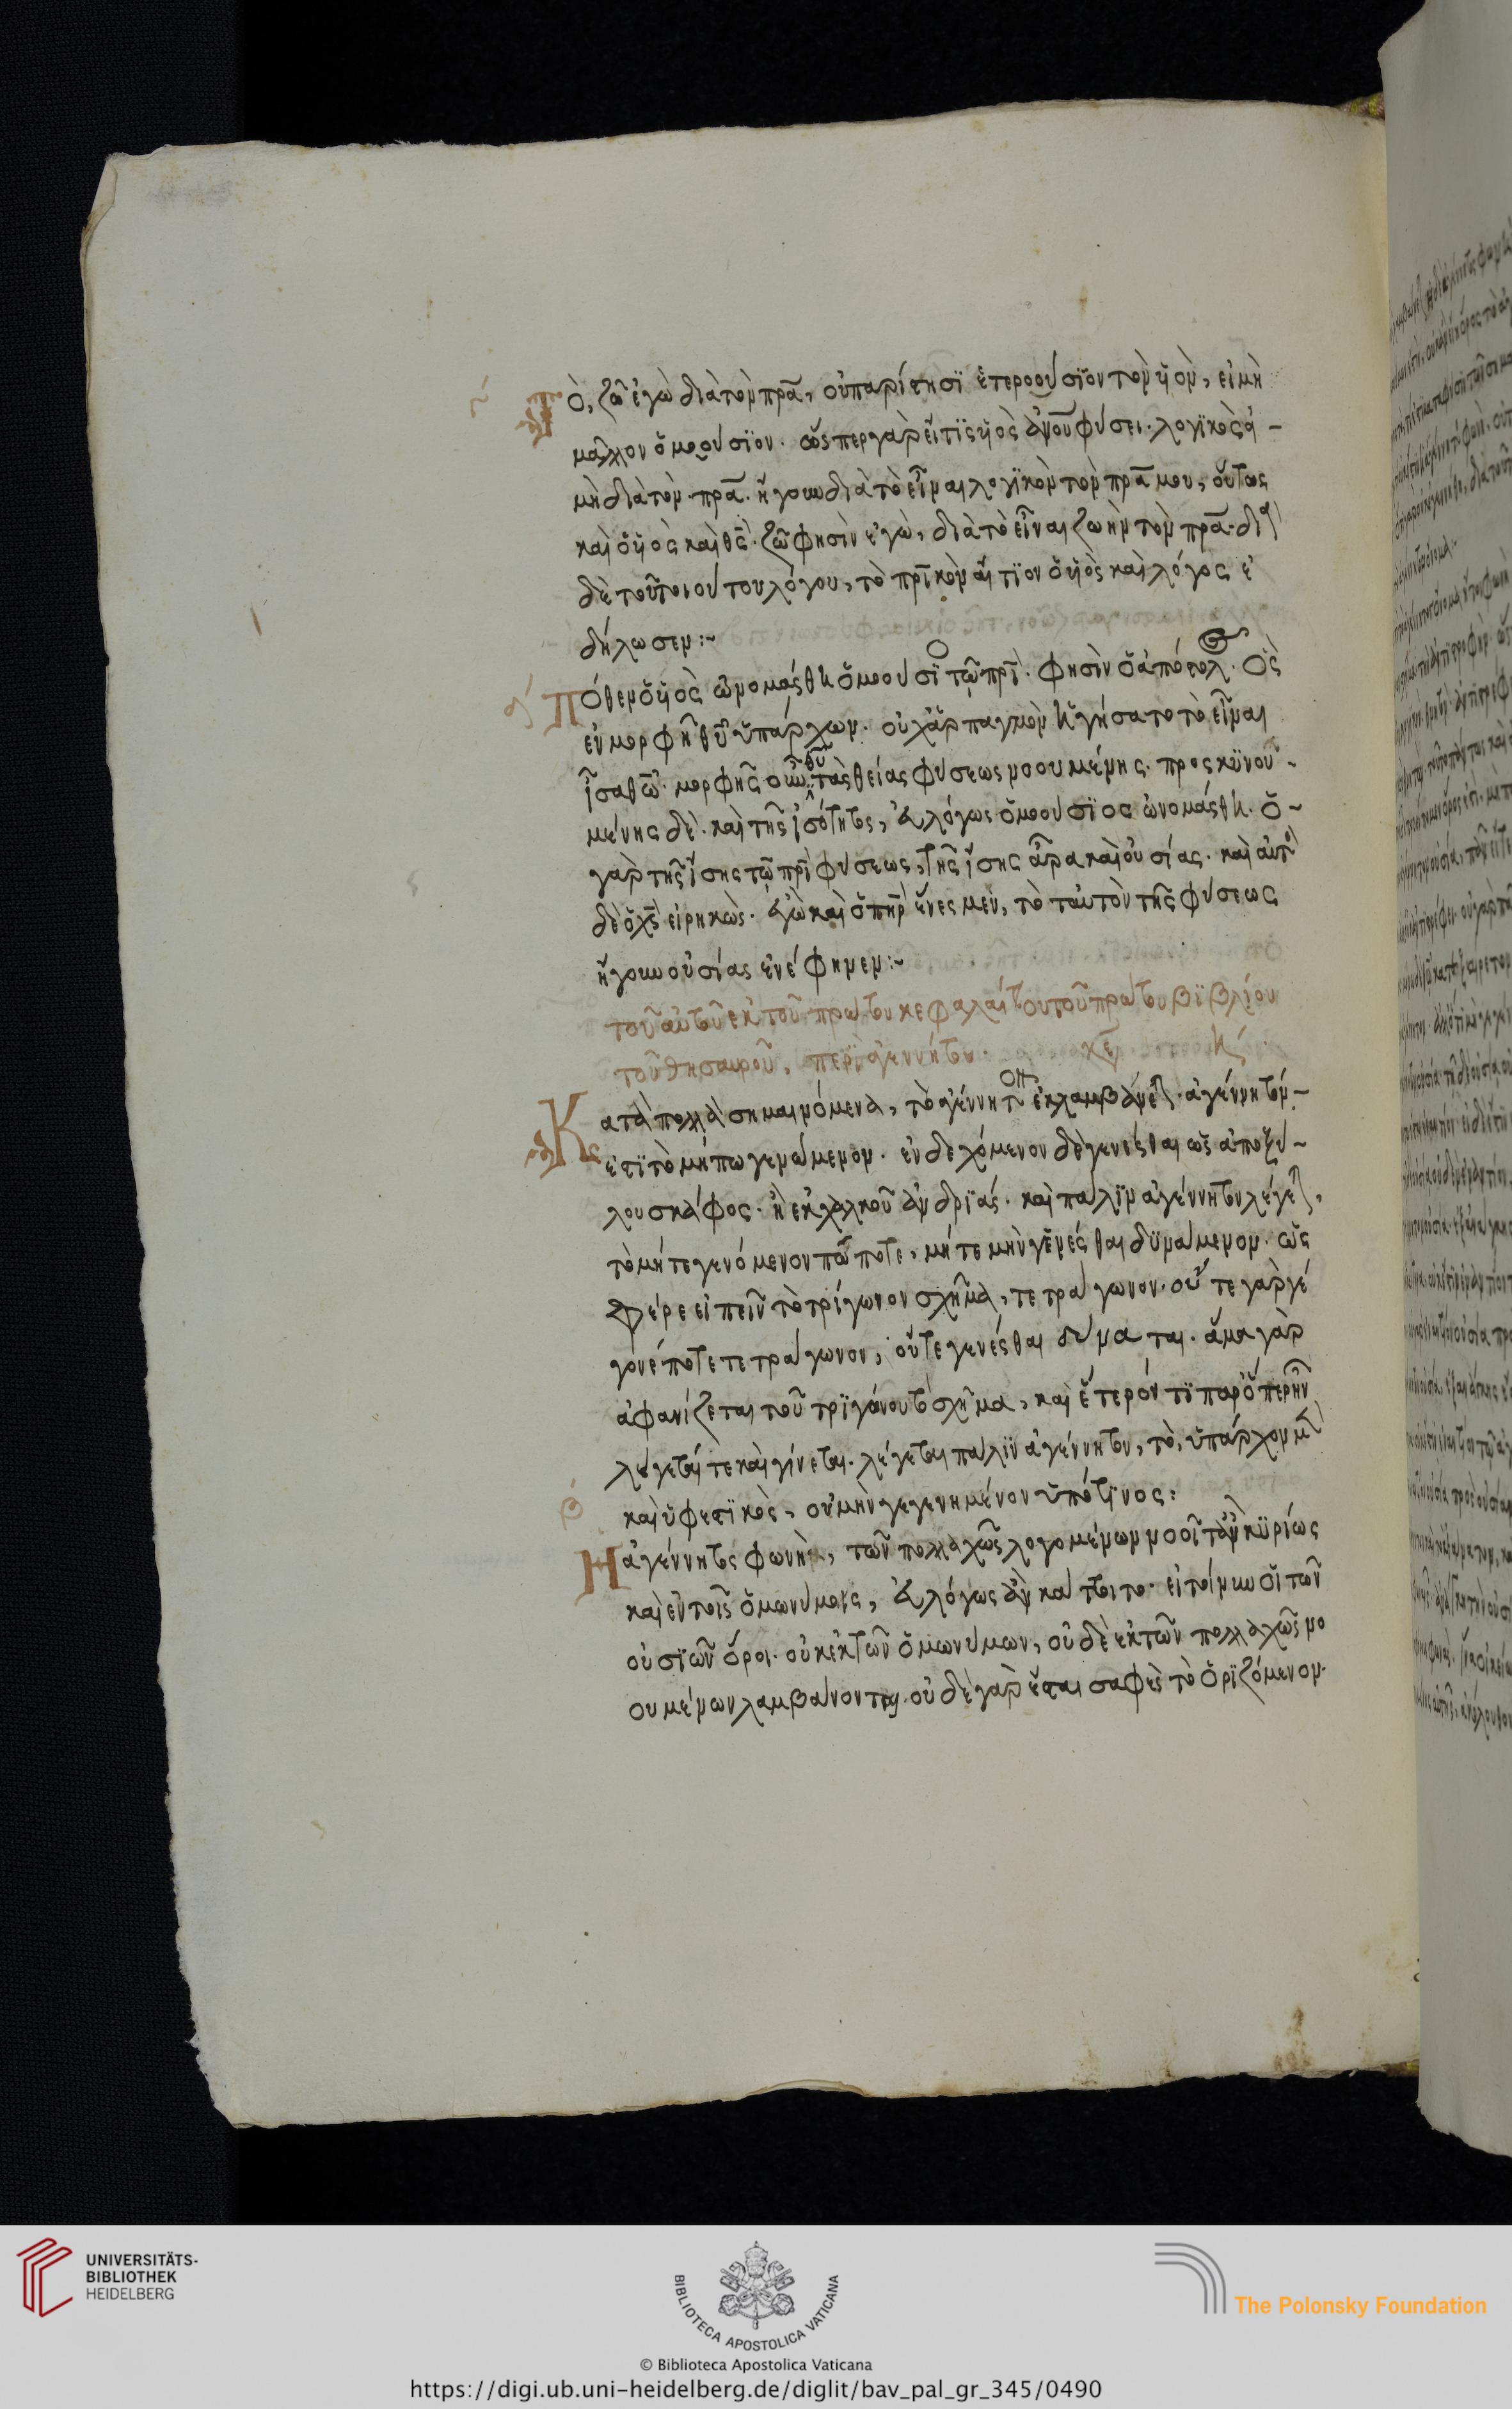 Τὸ, ζῶ ἐγὼ διὰ τὸν πρα, οὐ παρίστησϊ ἑτεροουσϊον τὸν ὑϊὸν, εἰ μὴ
μᾶλλον ὁμοουσϊον. ὥς περ γὰρ εἴ τϊς ὑϊὸς ἀνοῦ φύσει. λογϊκὸς
μὴ διὰ τὸν πρα. ἤγουν διὰ τὸ εἶναι λογϊκὸν τὸν πρα μου, οὕτως
καὶ ὁ ὑϊὸς καὶ θς. ζῶ φησὶν ἐγὼ, διὰ τὸ εἶναι ζωὴν τὸν πρα. διὰ
δὲ τοῦ τοιούτου λόγου, τὸ πρϊκὸν αἴτϊον ὁ ὑϊὸς καὶ λόγος ἐ
δήλωσεν:~
Πόθεν ὁ ὑϊὸς ὠνομάσθη ὁμοουσϊο τῶ πρϊ. φησὶν ὁ ἀπόστολ. Ὃς
ἐν μορφῆ θυ ὑπάρχων. οὐχ ἁρπαγμὸν ἡγήσατο τὸ εἶναι
ἶσα θω. μορφῆς οὖν θυ τῆς θείας φύσεως νοουμένης. προς κϋνου-
μένης δὲ. καὶ τῆς ἰσότητος, εὐλόγως ὁμοουσϊος ὠνομάσθη. ὁ-
γὰρ τῆς ἴσης τῶ πρϊ φύσεως, τῆς ἴσης ἄρα καὶ οὐσίας. καὶ αὐτὸς
δὲ ὁ χς εἰρηκὼς. ἐγὼ καὶ ὁ πηρ ἕν ἐσμεν, τὸ ταὐτὸν τῆς φύσεως
ἤγουν οὐσίας ἐνέφηνεν:~
τοῦ αὐτοῦ ἐκ τοῦ πρώτου κεφαλαίου τοῦ πρώτου βϊβλίου
τοῦ θησαυροῦ, περὶ ἀγεννήτου.
Κατὰ πολλὰ σημαινόμενα, τὸ ἀγέννητον ἐκλαμβάνετ. ἀγέννητον-
ἐστϊ τὸ μήπω γενόμενον. ἐνδεχόμενον δὲ γενέσθαι ὡς ἀπὸ ξύ-
λου σκάφος. ἢ ἐκ χαλκοῦ ἀνδρϊάς. καὶ πάλϊν ἀγέννητον λέγετ,
τὸ μήτε γενόμενον πώποτε, μήτε μὴν γενέσθαι δϋνάμενον. ὡς
φέρε εἰπεῖν τὸ τρίγωνον σχῆμα, τετράγωνον. οὔτε γὰρ γέ
γονέ ποτε τετράγωνον, οὔτε γενέσθαι δύναται. ἅμα γὰρ
ἀφανίζεται τοῦ τρϊγώνου τὸ σχῆμα, καὶ ἕτερόν τϊ παρ' ὅπερ ἦν
λέγεταί τε καὶ γίνεται. λέγεται πάλϊν ἀγέννητον, τὸ, ὑπάρχον μὲν
καὶ ὑφεστϊκὸς, οὐ μὴν γεγενημένον ὑπό τϊνος:
Ἡ ἀγέννητος φωνὴ, τῶν πολλαχῶς λεγομένων νοοῖτ' ἂν κϋρίως
καὶ ἐν τοῖς ὁμωνύμοις, εὐλόγως ἂν κέοιτο. εἰ τοίνυν οἱ τῶν
οὐσϊῶν ὅροι. οὐκ ἐκ τῶν ὁμωνύμων, οὐδὲ ἐκ τῶν πολλαχῶς νο
ουμένων λαμβάνονται. οὐδὲ γὰρ ἔσται σαφὲς τὸ ὁρϊζόμενον.
UNIVERSITÄTS-
BIBLIOTHEK
HEIDELBERG
BIBLIOTECA APOSTOLICA VATICANA
The Polonsky Foundation
© Biblioteca Apostolica Vaticana
https://digi.ub.uni-heidelberg.de/diglit/bav_pal_gr_345/0490